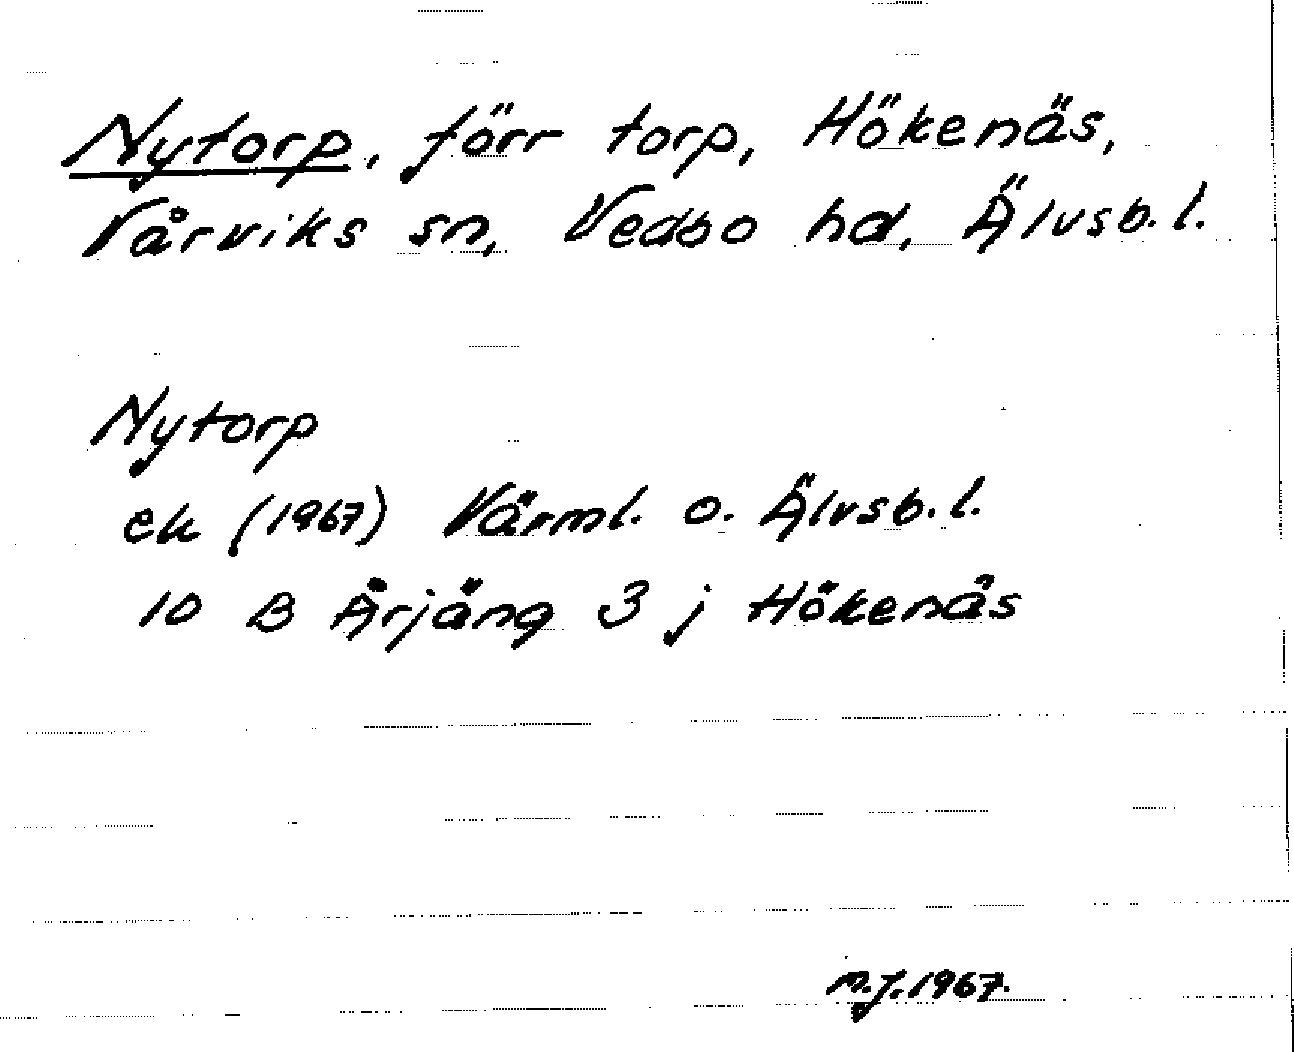 Nytorp, förr torp, Hökenäs,
Vårviks sn, Vedbo hd, Älvsb. l.
Nytorp
ek (1967) Värml. o. Älvsb. l.
10 B Årjäng 3 j Hökenäs
M.J. 1967.